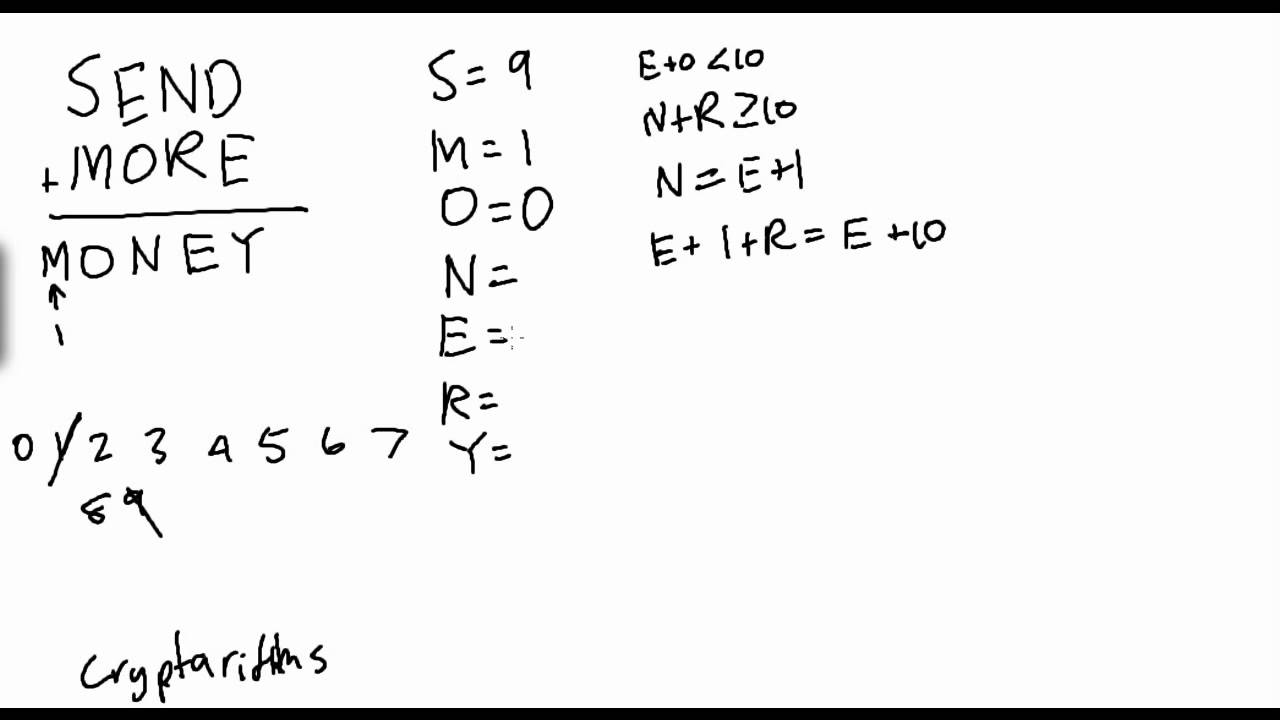 SEND
+MORE
MONEY
↑
1
0 1 2 3 4 5 6 7
8 9
cryptarithms
S=9
M=1
O=0
N=
E=
R=
Y=
E+0<10
N+R≥10
N=E+1
E+1+R=E+10